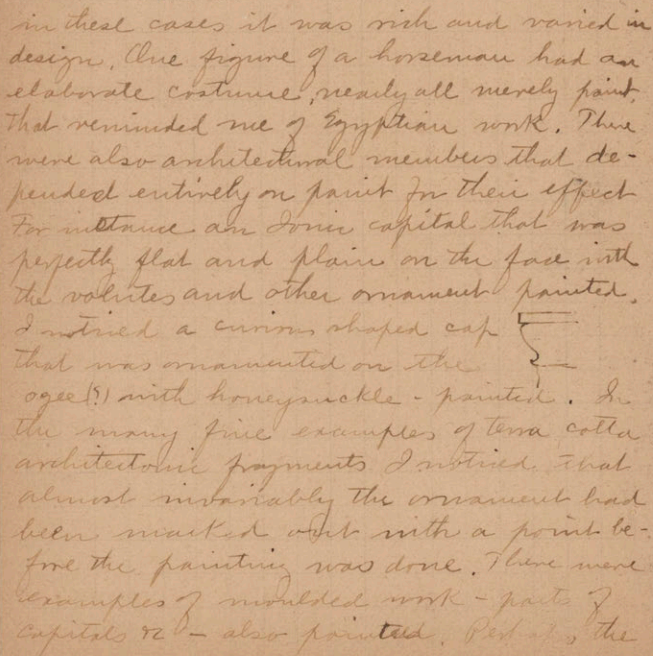 in these cases it was rich and varied in
design. One figure of a horseman had an
elaborate costume, nearly all merely paint,
that reminded me of Egyptian work. There
were also architectural members that de-
pended entirely on paint for their effect
For instance an Ionic capital that was
perfectly flat and plain on the face with
the volutes and other ornament painted.
I noticed a curious shaped cap
that was ornamented on the
ogee (?) with honeysuckle - painted. In
the many fine examples of terra cotta
architectonic fragments I noticed that
almost invariably the ornament had
been marked out with a point be-
fore the painting was done. There were
examples of moulded work - parts of
capitals &c - also painted. Perhaps the